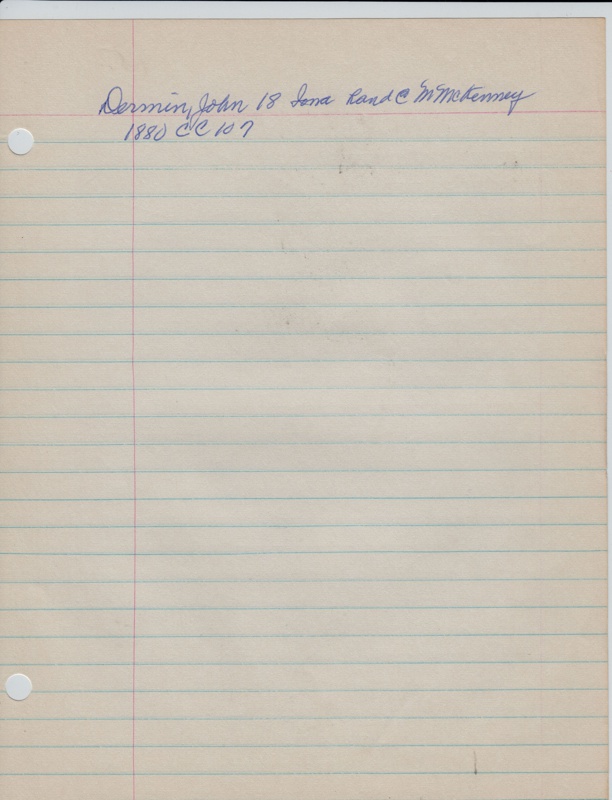 Dermin, John 18 Iona Rand C Wm McKenney
1880 CC 107